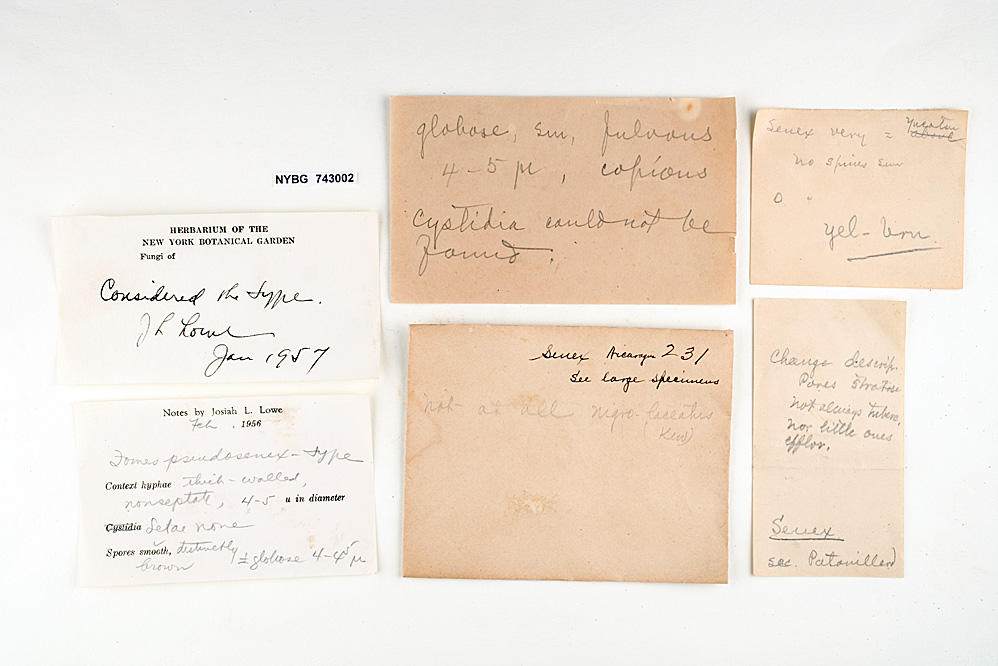 NYBG 743002
HERBARIUM OF THE
NEW YORK BOTANICAL GARDEN
Fungi of
Considered the Type.
J L Lowe
Jan 1957
Notes by Josiah L. Lowe
Feb . 1956
Fomes pseudosenex - type
Context hyphae thick-walled,
nonseptate, 4-5 u in diameter
Cystidia Setae none
Spores smooth, distinctly
brown ± globose 4-4.5 µ
globose, sm, fulvous
4-5 µ, copious
Cystidia could not be
found.
Senex Nicaragua 231
See large specimens
not at all nigro-laccatus
(Kew)
Senex very = Yucatan
above
no spines seen
yel-brn
Change descrip.
Pores stratose
not always tubero,
nor little ones
efflor.
Senex
sec. Patouillard